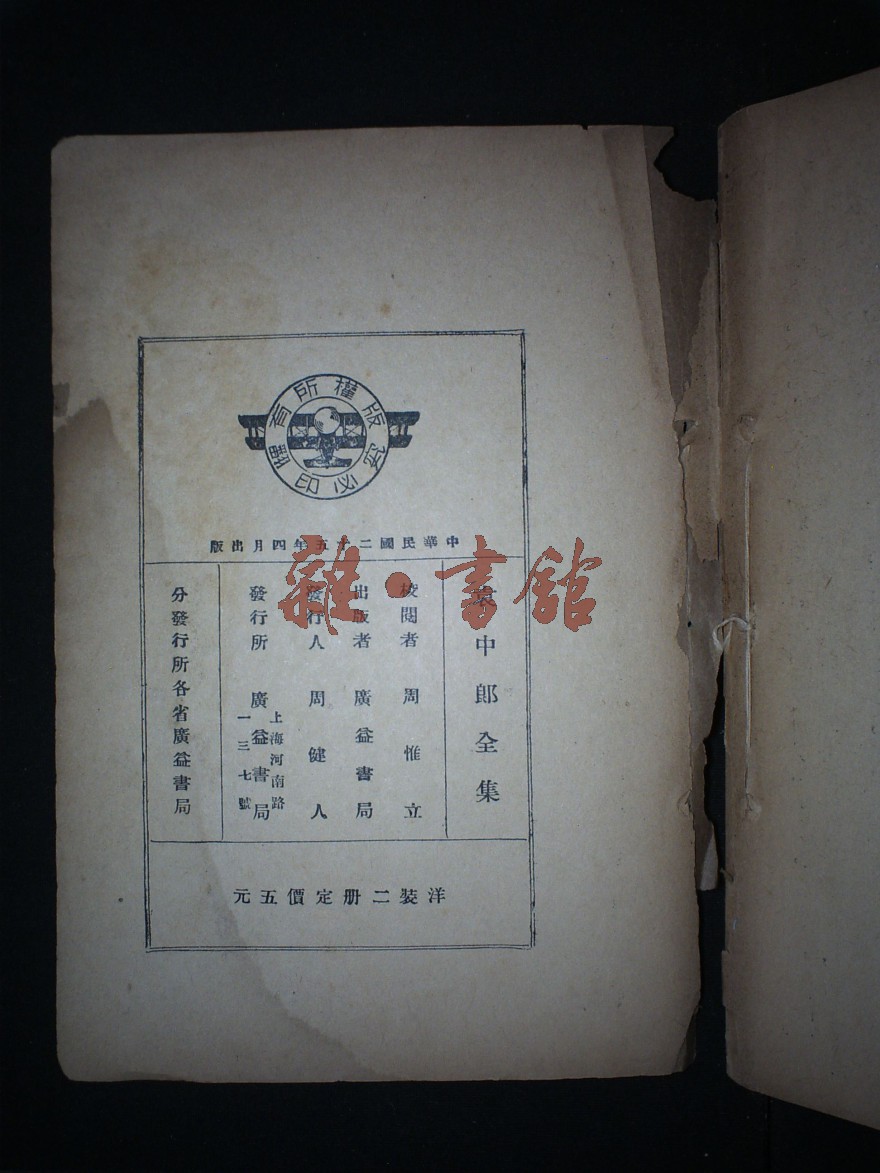 版權所有
翻印必究
中華民國二十五年四月出版
袁中郎全集
校閱者 周惟立
出版者 廣益書局
發行人 周健人
發行所 廣益書局
上海河南路
一三七號
分發行所各省廣益書局
洋裝二册定價五元
雜·書館